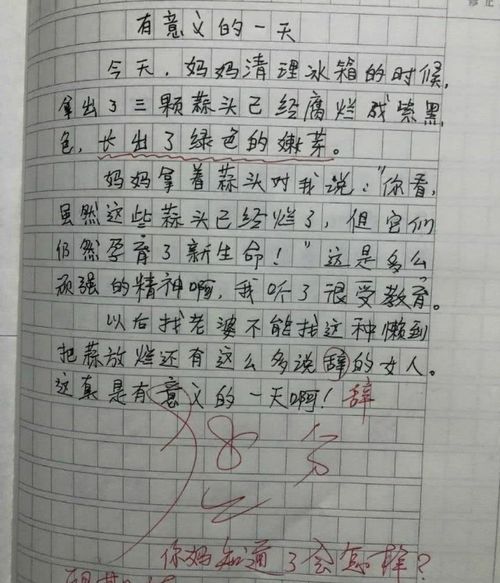 有意义的一天
今天，妈妈清理冰箱的时候，
拿出了三颗蒜头已经腐烂成紫黑
色，长出了绿色的嫩芽。
妈妈拿着蒜头对我说：“你看，
虽然这些蒜头已经烂了，但它们
仍然孕育了新生命！”这是多么
顽强的精神啊，我听了很受教育。
以后找老婆不能找这种懒到
把蒜放烂还有这么多说辞的女人。
这真是有意义的一天啊！辞
8分
你妈知道了会怎样？